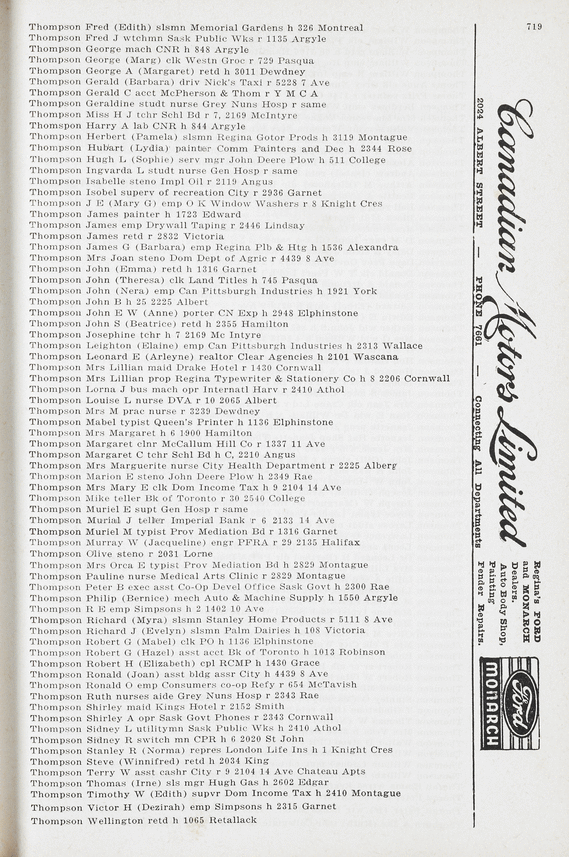 719
Thompson Fred (Edith) slsmn Memorial Gardens h 326 Montreal
Thompson Fred J wtchmn Sask Public Wks r 1135 Argyle
Thompson George mach CNR h 848 Argyle
Thompson George (Marg) clk Westn Groc r 729 Pasqua
Thompson George A (Margaret) retd h 3011 Dewdney
Thompson Gerald (Barbara) driv Nick's Taxi r 5228 7 Ave
Thompson Gerald C acct McPherson & Thom r Y M C A
Thompson Geraldine studt nurse Grey Nuns Hosp r same
Thompson Miss H J tchr Schl Bd r 7, 2169 McIntyre
Thomspon Harry A lab CNR h 844 Argyle
Thompson Herbert (Pamela) slsmn Regina Gotor Prods h 3119 Montague
Thompson Hubart (Lydia) painter Comm Painters and Dec h 2344 Rose
Thompson Hugh L (Sophie) serv mgr John Deere Plow h 511 College
Thompson Ingvarda L studt nurse Gen Hosp r same
Thompson Isabelle steno Impl Oil r 2119 Angus
Thompson Isobel superv of recreation City r 2936 Garnet
Thompson J E (Mary G) emp O K Window Washers r 8 Knight Cres
Thompson James painter h 1723 Edward
Thompson James emp Drywall Taping r 2446 Lindsay
Thompson James retd r 2832 Victoria
Thompson James G (Barbara) emp Regina Plb & Htg h 1536 Alexandra
Thompson Mrs Joan steno Dom Dept of Agric r 4439 8 Ave
Thompson John (Emma) retd h 1316 Garnet
Thompson John (Theresa) clk Land Titles h 745 Pasqua
Thompson John (Nera) emp Can Pittsburgh Industries h 1921 York
Thompson John B h 25 2225 Albert
Thompson John E W (Anne) porter CN Exp h 2948 Elphinstone
Thompson John S (Beatrice) retd h 2355 Hamilton
Thompson Josephine tchr h 7 2169 Mc Intyre
Thompson Leighton (Elaine) emp Can Pittsburgh Industries h 2313 Wallace
Thompson Leonard E (Arleyne) realtor Clear Agencies h 2101 Wascana
Thompson Mrs Lillian maid Drake Hotel r 1430 Cornwall
Thompson Mrs Lillian prop Regina Typewriter & Stationery Co h 8 2206 Cornwall
Thompson Lorna J bus mach opr Internatl Harv r 2410 Athol
Thompson Louise L nurse DVA r 10 2065 Albert
Thompson Mrs M prac nurse r 3239 Dewdney
Thompson Mabel typist Queen's Printer h 1136 Elphinstone
Thompson Mrs Margaret h 6 1900 Hamilton
Thompson Margaret clnr McCallum Hill Co r 1337 11 Ave
Thompson Margaret C tchr Schl Bd h C, 2210 Angus
Thompson Mrs Marguerite nurse City Health Department r 2225 Alberg
Thompson Marion E steno John Deere Plow h 2349 Rae
Thompson Mrs Mary E clk Dom Income Tax h 9 2104 14 Ave
Thompson Mike teller Bk of Toronto r 30 2540 College
Thompson Muriel E supt Gen Hosp r same
Thompson Murial J teller Imperial Bank r 6 2133 14 Ave
Thompson Muriel M typist Prov Mediation Bd r 1316 Garnet
Thompson Murray W (Jacqueline) engr PFRA r 29 2135 Halifax
Thompson Olive steno r 2031 Lorne
Thompson Mrs Orca E typist Prov Mediation Bd h 2829 Montague
Thompson Pauline nurse Medical Arts Clinic r 2829 Montague
Thompson Peter B exec asst Co-Op Devel Office Sask Govt h 2300 Rae
Thompson Philip (Bernice) mech Auto & Machine Supply h 1550 Argyle
Thompson R E emp Simpsons h 2 1402 10 Ave
Thompson Richard (Myra) slsmn Stanley Home Products r 5111 8 Ave
Thompson Richard J (Evelyn) slsmn Palm Dairies h 108 Victoria
Thompson Robert G (Mabel) clk PO h 1136 Elphinstone
Thompson Robert G (Hazel) asst acct Bk of Toronto h 1013 Robinson
Thompson Robert H (Elizabeth) cpl RCMP h 1430 Grace
Thompson Ronald (Joan) asst bldg assr City h 4439 8 Ave
Thompson Ronald O emp Consumers co-op Refy r 654 McTavish
Thompson Ruth nurses aide Grey Nuns Hosp r 2343 Rae
Thompson Shirley maid Kings Hotel r 2152 Smith
Thompson Shirley A opr Sask Govt Phones r 2343 Cornwall
Thompson Sidney L utilitymn Sask Public Wks h 2410 Athol
Thompson Sidney R switch mn CPR h 6 2020 St John
Thompson Stanley R (Norma) repres London Life Ins h 1 Knight Cres
Thompson Steve (Winnifred) retd h 2034 King
Thompson Terry W asst cashr City r 9 2104 14 Ave Chateau Apts
Thompson Thomas (Irne) sls mgr Hugh Gas h 2602 Edgar
Thompson Timothy W (Edith) supvr Dom Income Tax h 2410 Montague
Thompson Victor H (Dezirah) emp Simpsons h 2315 Garnet
Thompson Wellington retd h 1065 Retallack
Canadian Motors Limited
2024 ALBERT STREET — PHONE 7661 — Connecting All Departments
Regina's FORD
and MONARCH
Dealers.
Auto Body Shop,
Painting
Fender Repairs.
Ford
MONARCH